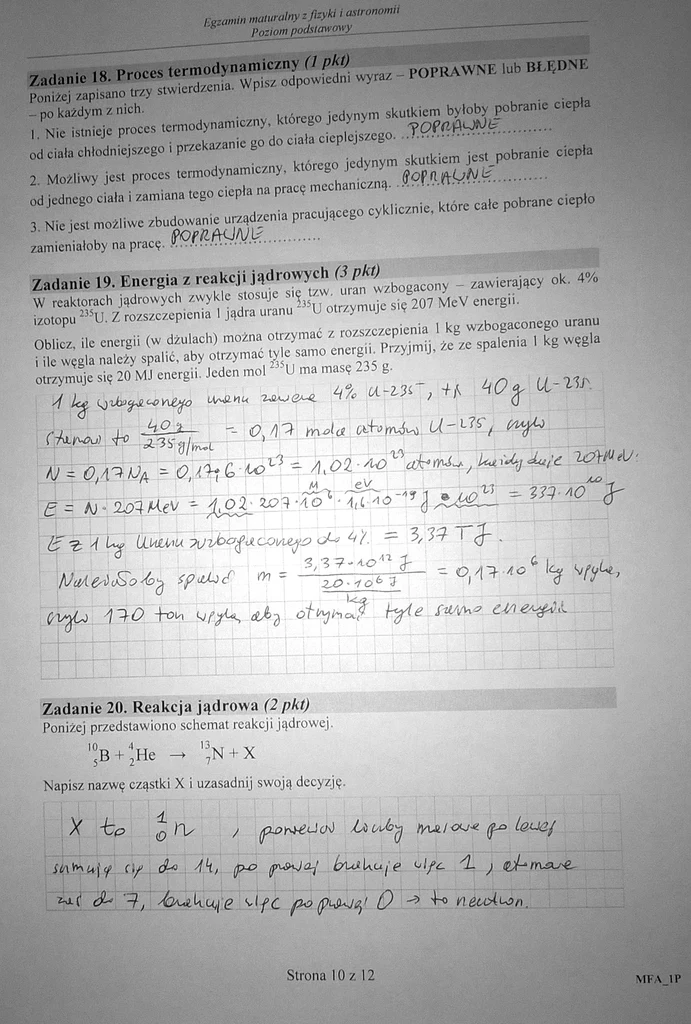 Egzamin maturalny z fizyki i astronomii
Poziom podstawowy
Zadanie 18. Proces termodynamiczny (1 pkt)
Poniżej zapisano trzy stwierdzenia. Wpisz odpowiedni wyraz – POPRAWNE lub BŁĘDNE
– po każdym z nich.
1. Nie istnieje proces termodynamiczny, którego jedynym skutkiem byłoby pobranie ciepła
od ciała chłodniejszego i przekazanie go do ciała cieplejszego. ..POPRAWNE..............
2. Możliwy jest proces termodynamiczny, którego jedynym skutkiem jest pobranie ciepła
od jednego ciała i zamiana tego ciepła na pracę mechaniczną. ..POPRAWNE..............
3. Nie jest możliwe zbudowanie urządzenia pracującego cyklicznie, które całe pobrane ciepło
zamieniałoby na pracę. POPRAWNE..............
Zadanie 19. Energia z reakcji jądrowych (3 pkt)
W reaktorach jądrowych zwykle stosuje się tzw. uran wzbogacony – zawierający ok. 4%
izotopu ²³⁵U. Z rozszczepienia 1 jądra uranu ²³⁵U otrzymuje się 207 MeV energii.
Oblicz, ile energii (w dżulach) można otrzymać z rozszczepienia 1 kg wzbogaconego uranu
i ile węgla należy spalić, aby otrzymać tyle samo energii. Przyjmij, że ze spalenia 1 kg węgla
otrzymuje się 20 MJ energii. Jeden mol ²³⁵U ma masę 235 g.
1 kg wzbogaconego uranu zawiera 4% U-235, tj. 40 g U-235.
Stanowi to 40g / 235 g/mol = 0,17 mola atomów U-235, czyli
N = 0,17 N_A = 0,17·6·10²³ = 1,02·10²³ atomów, każdy daje 207 MeV.
E = N·207 MeV = 1,02·207·10⁶·1,6·10⁻¹⁹ J·10²³ = 337·10¹⁰ J
M eV
E z 1 kg Uranu wzbogaconego do 4% = 3,37 TJ.
Należałoby spalić m = 3,37·10¹² J / 20·10⁶ J/kg = 0,17·10⁶ kg węgla,
czyli 170 ton węgla, aby otrzymać tyle samo energii
Zadanie 20. Reakcja jądrowa (2 pkt)
Poniżej przedstawiono schemat reakcji jądrowej.
¹⁰₅B + ⁴₂He → ¹³₇N + X
Napisz nazwę cząstki X i uzasadnij swoją decyzję.
X to ¹₀n , ponieważ liczby masowe po lewej
sumują się do 14, po prawej brakuje więc 1, atomowe
zaś do 7, brakuje więc po prawej 0 → to neutron.
Strona 10 z 12
MFA_1P